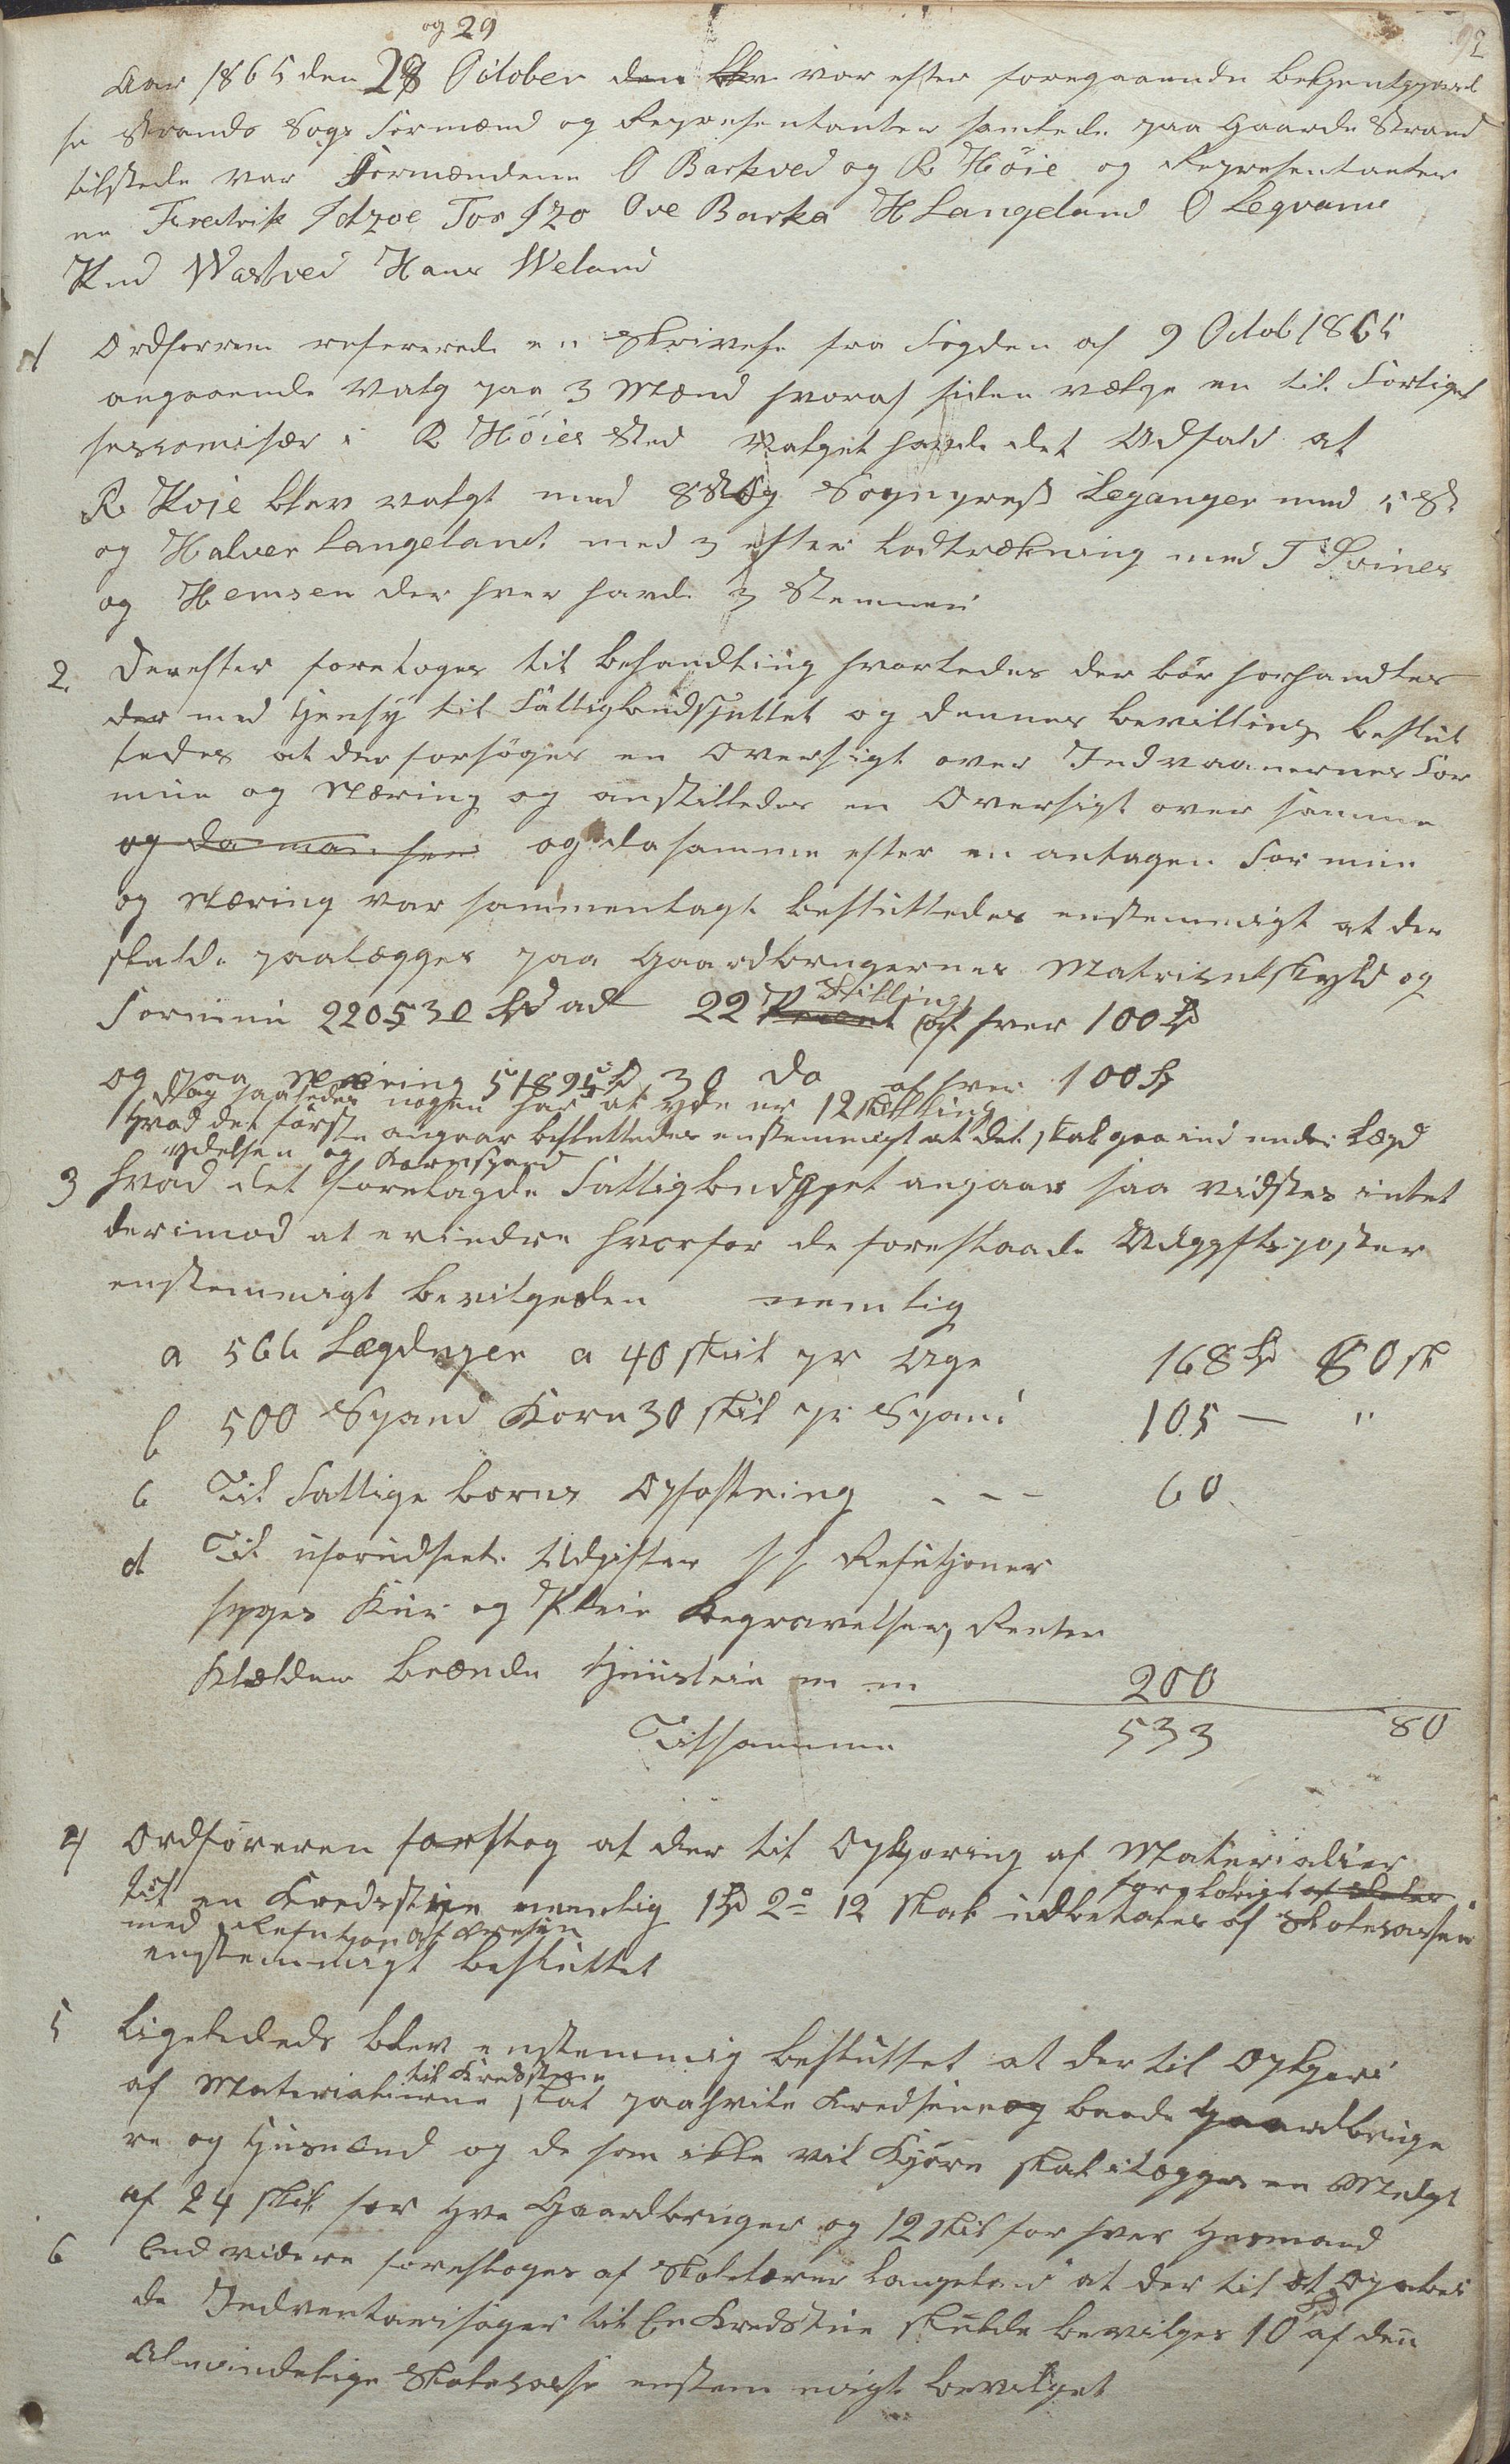 92
og 29
Aar 1865 den 28 October den blev var efter foregaaende bekjentgjørel
se Strands Sogs Formænd og Representanter samlede paa Gaarde Strand
tilstede var Formændene O Barkved og R Höie og Representanter
ne Fredrik Idzoe Tor Izo Ove Barka H Langeland O Leqvame
Knud Wastved Hans Weland
1 Ordførren refererede en Skrivelse fra Fogden af 9 Octob 1865
angaaende Valg paa 3 Mænd hvoraf siden vælge en til Forligel
sescomisær i R Höies Sted Valget havde det Udfald at
R Hoie blev valgt med 8 St og Sogneprest Leganger med 5 St
og Halver Langeland med 3 efter Lodtrækning med T
og Hemsen der hver havde 3 Stemmer
2. Derefter foretoges til behandling hvorledes der bör forhandles
der med Hensyn til Fattigbudsjettet og dennes bevilling beslut
tedes at der forsöges en Oversigt over Indvaanernes For
mue og Næring og anstilledes en Oversigt over samme
og da man har og da samme efter en antagen Formue
og Næring var sammenlagt besluttedes enstemmigt at der
skulde paalægges paa Gaardbrugernes Matrikulskyld og
Formue 220530 Spd at 22 Procent Skilling af hver 100 Spd
og paa Næring 51895 Spd 30 do af hver 100 Spd
nogen har at yde er 12 Skilling
Hvad det förste angaar besluttedes enstemmigt at det skal gaa ind under Lægd
ydelsen og Kornspand
3 Hvad det forelagde Fattigbudsjet angaar saa vidstes intet
derimod at erindre hvorfor de forestaaede Udgiftsposter
enstemmigt bevilgeden nemlig
a 566 Lægduger a 40 skil pr Uge 168 Spd 80 sk
b 500 Spand Korn 30 skil pr Spand 105 — "
c Til Fattige börns Opfostring - - - 60
d Til uforudseete Udgifter s s Refutjoner
syges Kur og Pleie Begravelser, Renter
Klæder brænde Huusleie m m 200
Tilsammen 533 80
4 Ordföreren forstog at der til Opkjøring af Materialier
til en Kredsstue nemlig 1 Spd 2 o 12 skal udbetales af Skolecassen
med Refutjon af Kredsen
enstemmigt besluttet
5 Ligelededs blev enstemmig besluttet at der til Opkjøri
af Materialierne til Kredsstuen skal paahvile Kredsene og baade Gaardbruge
re og Husmænd og de som ikke vil Kjöre skal ilægges en Mulgt
af 24 skil for hve Gaardbruger og 12 skil for hver Husmand
6 Endvidere foresloges af Skolelærer Langeland at der til at
de Indventarisager til En Kredsstue skulde bevilges 10 Spd af den
Almindelige Skolecasse enstemmigt bevilget